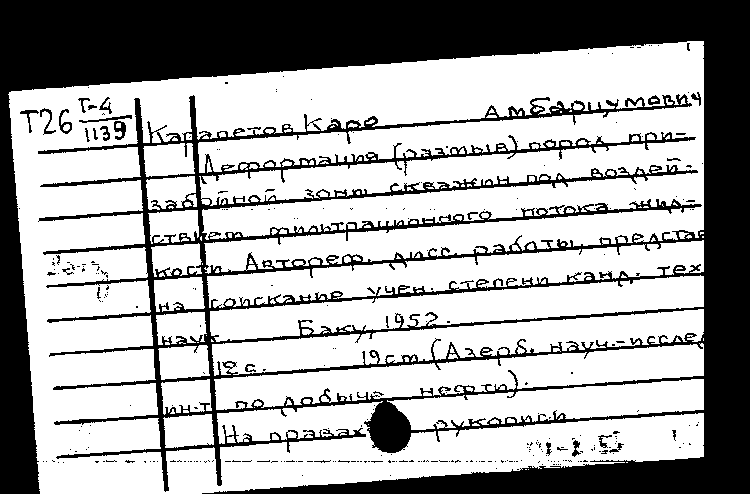 Т26 Т-4
1139
Карапетов, Каро Амбарцумович
Деформация (размыв) пород при-
забойной зоны скважин под воздей-
ствием фильтрационного потока жид-
кости. Автореф. дисс. работы, представ
на соискание учен. степени канд. тех
наук. Баку, 1952.
12 с. 19 см. (Азерб. науч.-исслед
ин-т по добыче нефти).
На правах рукописи